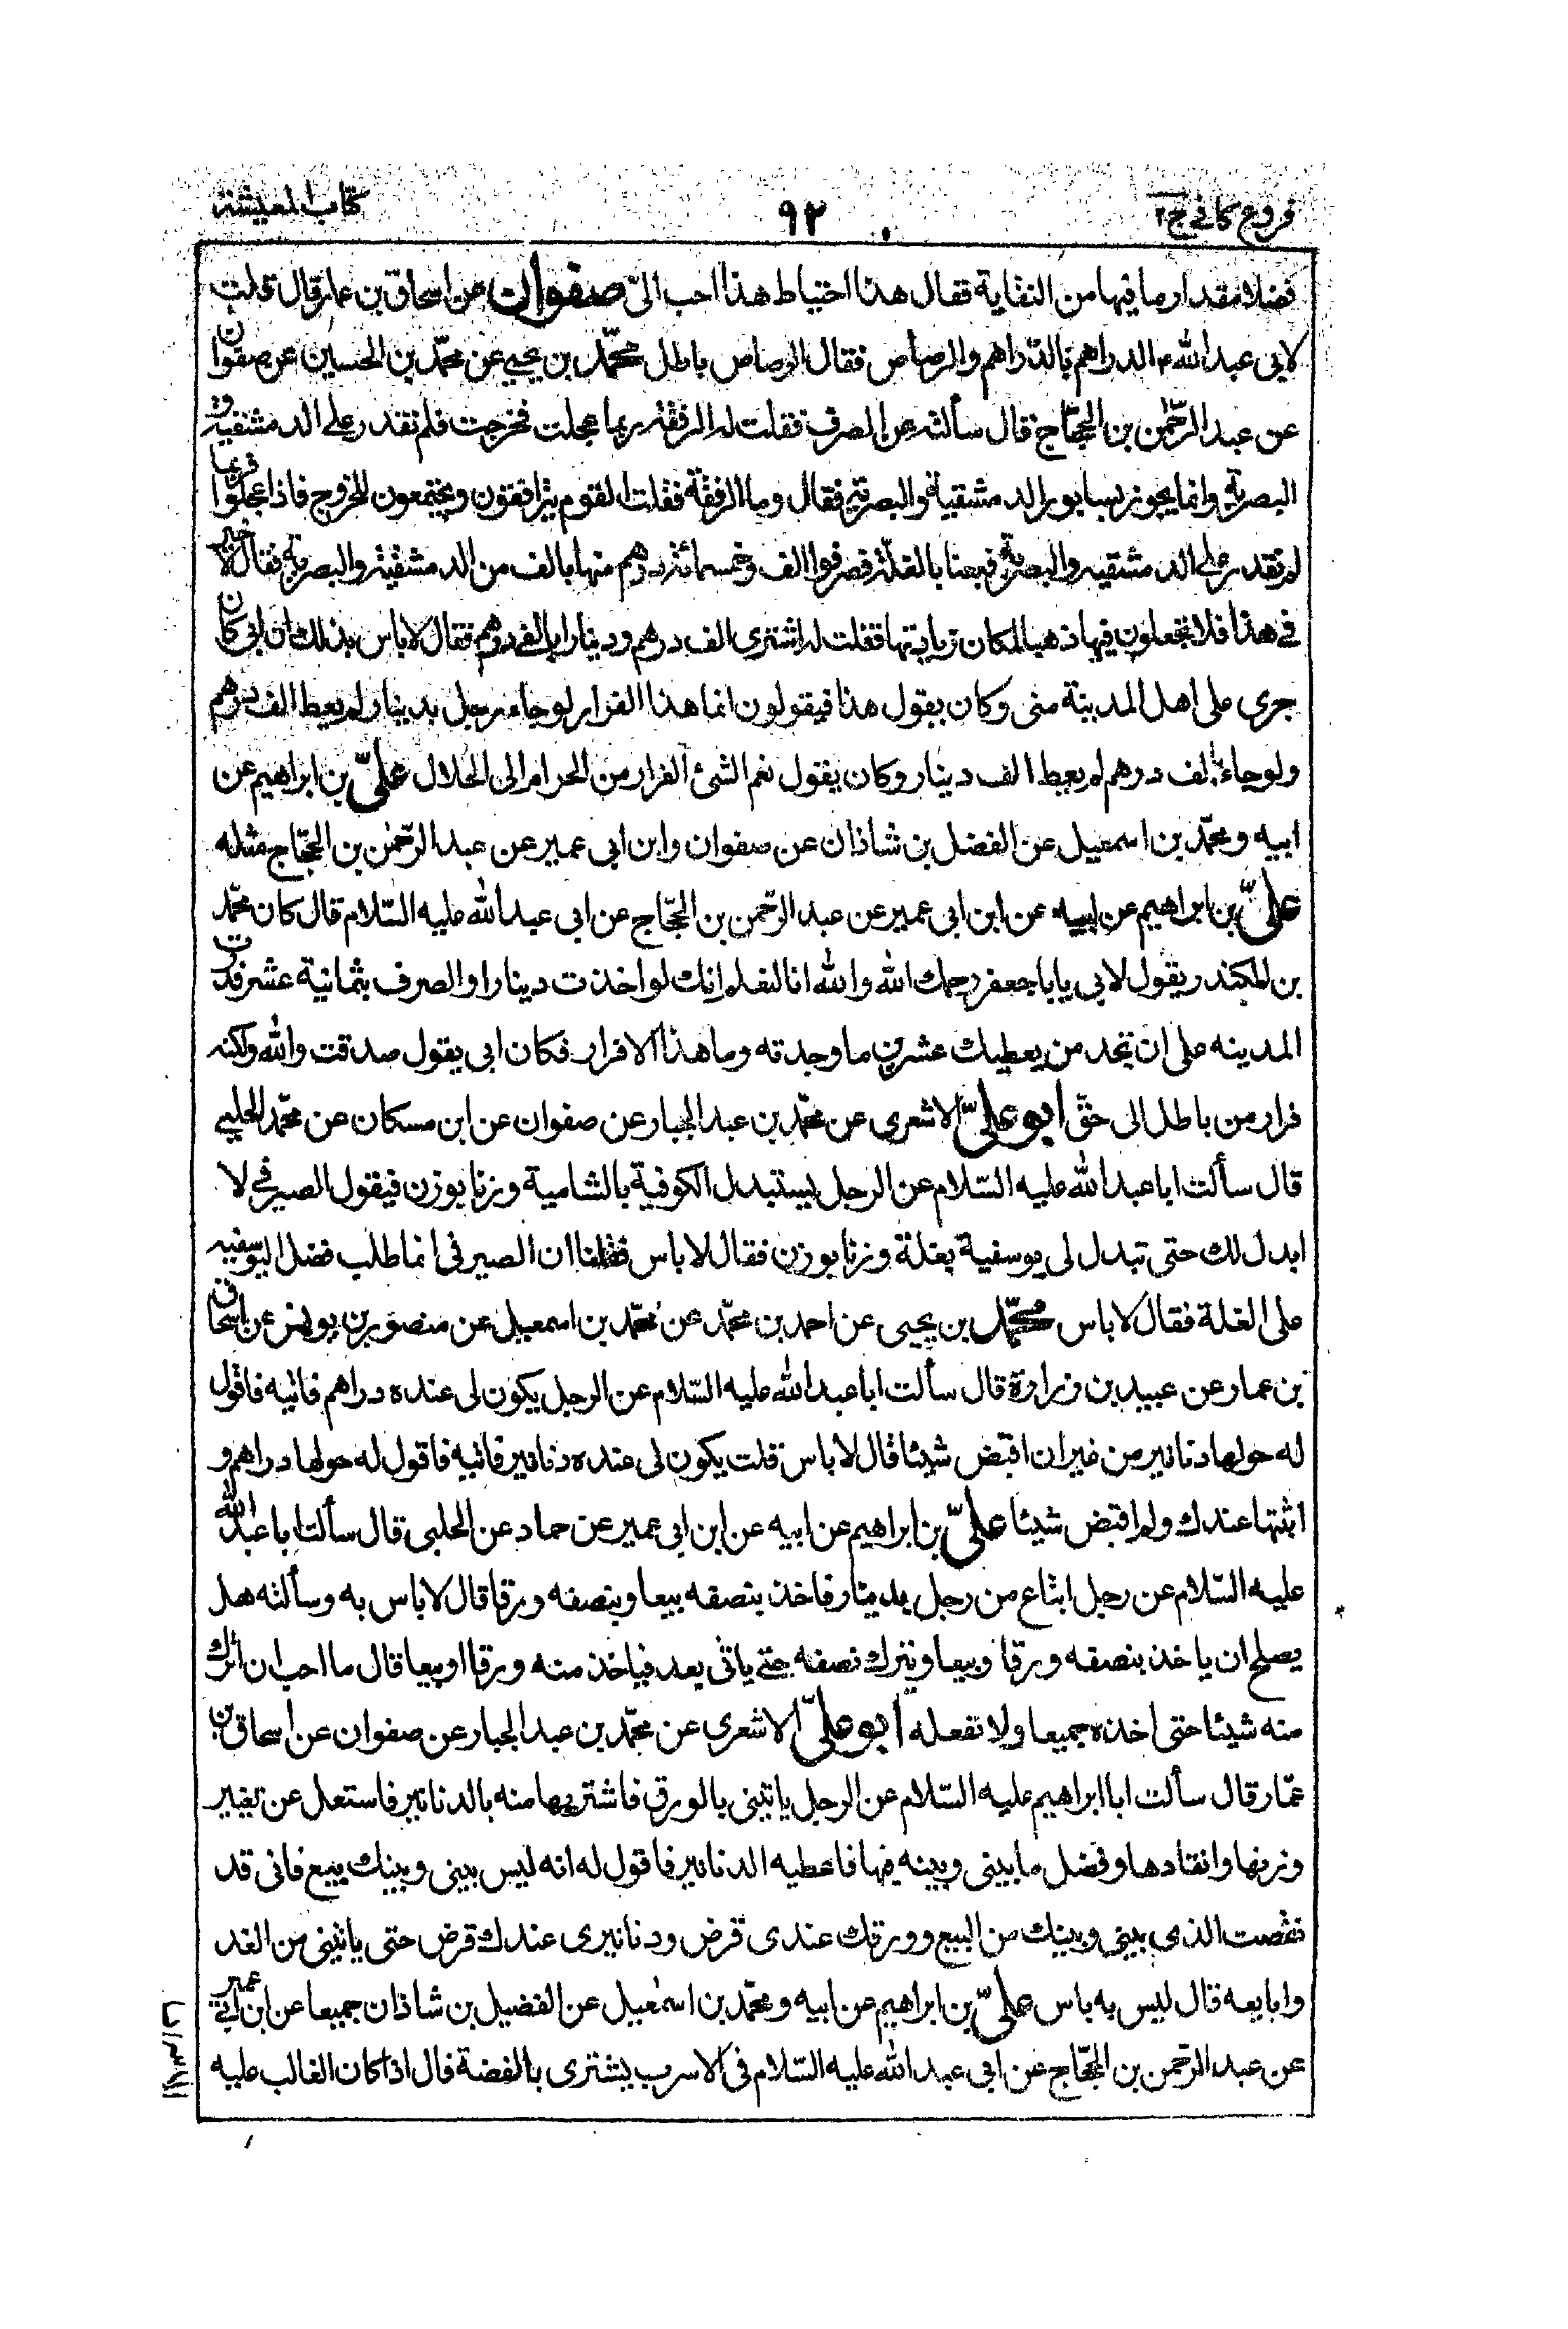 فروع كافي ج٢
٩٢
كتاب المعيشة
فضلا مقدار ما فيها من النفاية فقال هذا احتياط هذا احب الىّ صفوان عن اسحاق بن عمار قال قلت
لابي عبد الله ع الدراهم بالدّراهم والرصاص فقال الرصاص باطل محمّد بن يحيى عن محمّد بن الحسين عن صفوان
عن عبد الرّحمن بن الحجّاج قال سألته عن الصرف فقلت له الرفقة ربما عجلت فخرجت فلم نقدر على الدمشقية و
البصرية وانما يجوز بسابور الدمشقية والبصرية فقال وما الرفقة فقلت القوم يترافقون ويجتمعون للخروج فاذا عجلوا فربما
لم نقدر على الدمشقيه والبصرية فبعثنا بالغلة فصرفوا الف وخمسمائة درهم منها بالف من الدمشقية والبصرية فقال لا خير
في هذا فلا تجعلون فيها ذهبا لمكان زيادتها فقلت له اشترى الف درهم ودينارا بالفى درهم فقال لا باس بذلك ان ابى كان
جرى على اهل المدينة منى وكان يقول هذا فيقولون انما هذا الفرار لو جاء رجل بدينار لم يعط الف درهم
ولو جاء بالف درهم لم يعط الف دينار وكان يقول نعم الشئ الفرار من الحرام الى الحلال علىّ بن ابراهيم عن
ابيه ومحمّد بن اسمعيل عن الفضل بن شاذان عن صفوان وابن ابى عمير عن عبد الرّحمن بن الحجّاج مثله
علىّ بن ابراهيم عن ابيه عن ابن ابى عمير عن عبد الرّحمن بن الحجّاج عن ابى عبد الله عليه السّلام قال كان محمّد
بن المكندر يقول لابى يا باجعفر رحمك الله والله انا لنعلم انك لو اخذت دينارا والصرف بثمانية عشر فدرت
المدينه على ان تجد من يعطيك عشرين ما وجدته وما هذا الا فرار فكان ابى يقول صدقت والله ولكنه
فرار من باطل الى حقّ ابو علىّ الاشعرى عن محمّد بن عبد الجبار عن صفوان عن ابن مسكان عن محمّد الحلبي
قال سألت ابا عبد الله عليه السّلام عن الرجل يستبدل الكوفية بالشامية وزنا بوزن فيقول الصيرفي لا
ابدل لك حتى تبدل لى يوسفية بغلة وزنا بوزن فقال لا باس فقلنا ان الصيرفى انما طلب فضل اليوسفيه
على الغلة فقال لا باس محمّد بن يحيى عن احمد بن محمّد عن محمّد بن اسمعيل عن منصور بن يونس عن اسحاق
بن عمار عن عبيد بن زرارة قال سألت ابا عبد الله عليه السّلام عن الرجل يكون لى عنده دراهم فاتيه فاقول
له حولها دنانير من غير ان اقبض شيئا قال لا باس قلت يكون لى عنده دنانير فاتيه فاقول له حولها دراهم و
اثبتها عندك ولم اقبض شيئا علىّ بن ابراهيم عن ابيه عن ابن ابى عمير عن حماد عن الحلبى قال سألت ابا عبد الله
عليه السّلام عن رجل ابتاع من رجل بدينار فاخذ بنصفه بيعا وبنصفه ورقا قال لا باس به وسألته هل
يصلح ان ياخذ بنصفه ورقا وبيعا ويترك نصفه حتى ياتى بعد فياخذ منه ورقا او بيعا قال ما احب ان اترك
منه شيئا حتى اخذه جميعا ولا تفعله ابو علىّ الاشعرى عن محمّد بن عبد الجبار عن صفوان عن اسحاق بن
عمّار قال سألت ابا ابراهيم عليه السّلام عن الرجل ياتينى بالورق فاشتريها منه بالدنانير فاستعل عن تغيير
وزنها وانقادها وفضل ما بينى وبينه فيها فاعطيه الدنانير فاقول له انه ليس بينى وبينك بيع فانى قد
نقصت الذى بينى وبينك من البيع وورقك عندى قرض ودنانيرى عندك قرض حتى ياتينى من الغد
وابايعه قال ليس به باس علىّ بن ابراهيم عن ابيه ومحمّد بن اسمعيل عن الفضيل بن شاذان جميعا عن ابن ابى عمير
عن عبد الرّحمن بن الحجّاج عن ابى عبد الله عليه السّلام فى الاسرب يشترى بالفضة قال اذا كان الغالب عليه